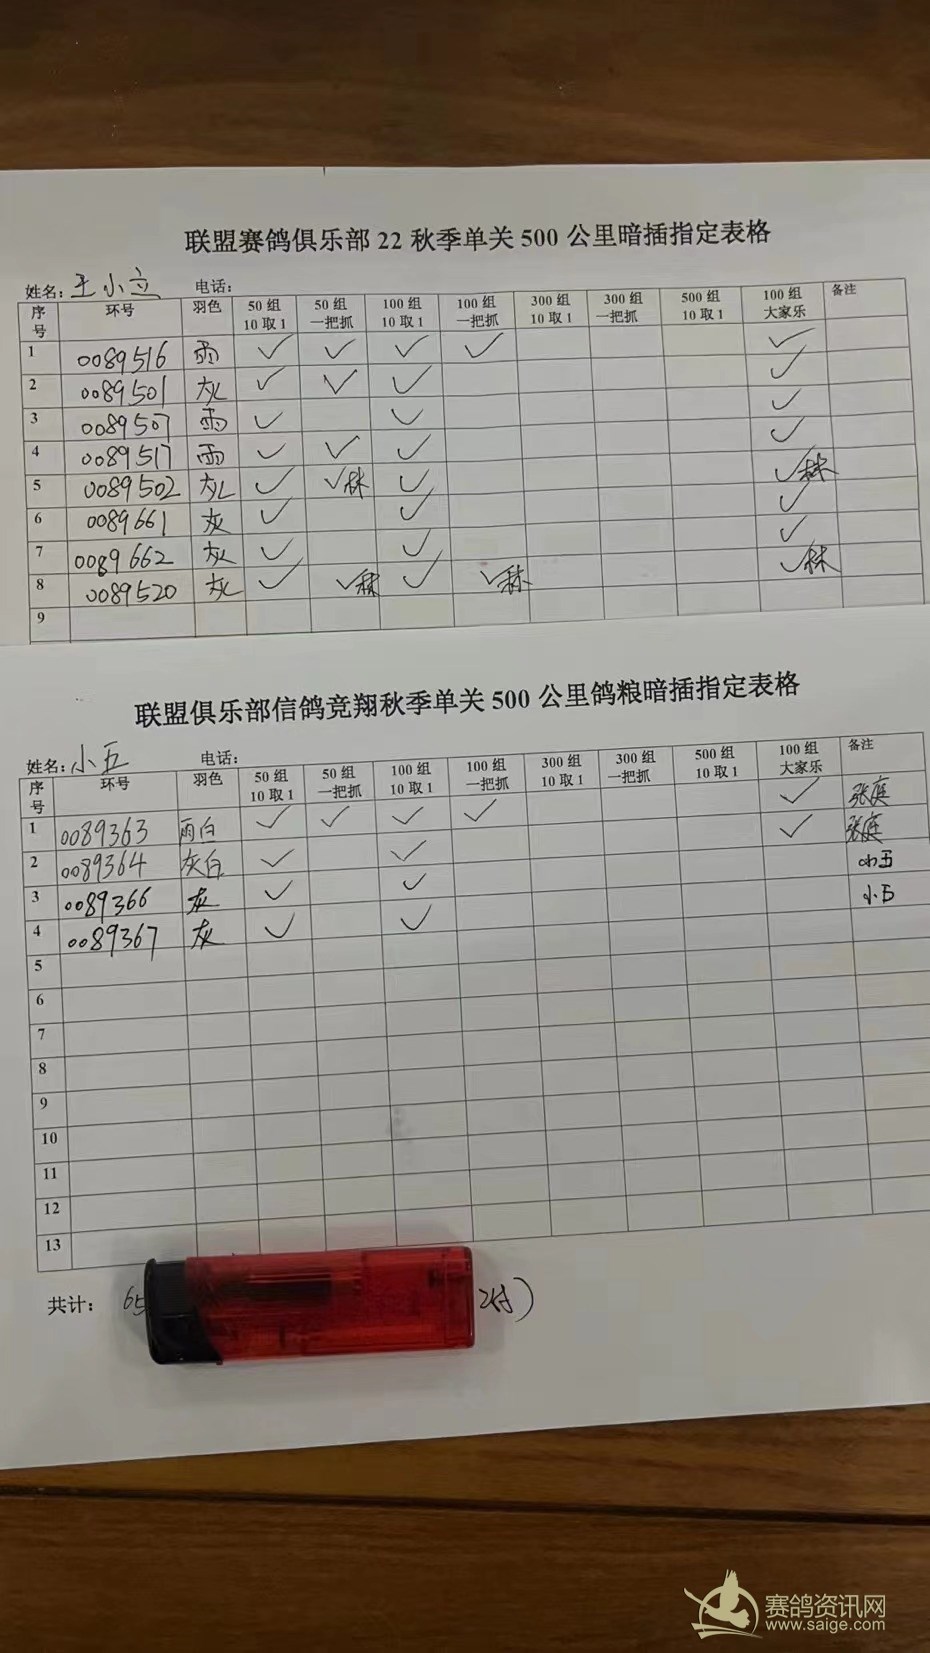 联盟赛鸽俱乐部 22 秋季单关 500 公里暗插指定表格
姓名：王小立 电话：
序号 环号 羽色 50 组 10 取 1 50 组 一把抓 100 组 10 取 1 100 组 一把抓 300 组 10 取 1 300 组 一把抓 500 组 10 取 1 100 组 大家乐 备注
1 0089516 雨 ✓ ✓ ✓ ✓ ✓
2 0089501 灰 ✓ ✓ ✓ ✓
3 0089507 雨 ✓ ✓ ✓
4 0089517 雨 ✓ ✓ ✓ ✓
5 0089502 灰 ✓ ✓林 ✓ ✓林
6 0089661 灰 ✓ ✓ ✓
7 0089662 灰 ✓ ✓ ✓
8 0089520 灰 ✓ ✓林 ✓ ✓林 ✓林
9
联盟俱乐部信鸽竞翔秋季单关 500 公里鸽粮暗插指定表格
姓名：小五 电话：
序号 环号 羽色 50 组 10 取 1 50 组 一把抓 100 组 10 取 1 100 组 一把抓 300 组 10 取 1 300 组 一把抓 500 组 10 取 1 100 组 大家乐 备注
1 0089363 雨白 ✓ ✓ ✓ ✓ ✓ 张庭
2 0089364 灰白 ✓ ✓ ✓ 张庭
3 0089366 灰 ✓ ✓ 小五
4 0089367 灰 ✓ ✓ 小五
5
6
7
8
9
10
11
12
13
共计： 65
赛鸽资讯网
www.saige.com